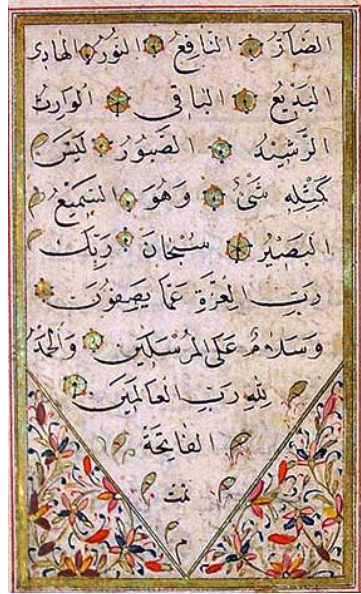 الضَّارُّ النَّافِعُ النُّورُ الهَادِي
البَدِيعُ البَاقِي الوَارِثُ
الرَّشِيدُ الصَّبُورُ لَيْسَ
كَمِثْلِهِ شَيْءٌ وَهُوَ السَّمِيعُ
البَصِيرُ سُبْحَانَ رَبِّكَ
رَبِّ العِزَّةِ عَمَّا يَصِفُونَ
وَسَلَامٌ عَلَى المُرْسَلِينَ وَالحَمْدُ
لِلَّهِ رَبِّ العَالَمِينَ
الفَاتِحَة
تمت
م